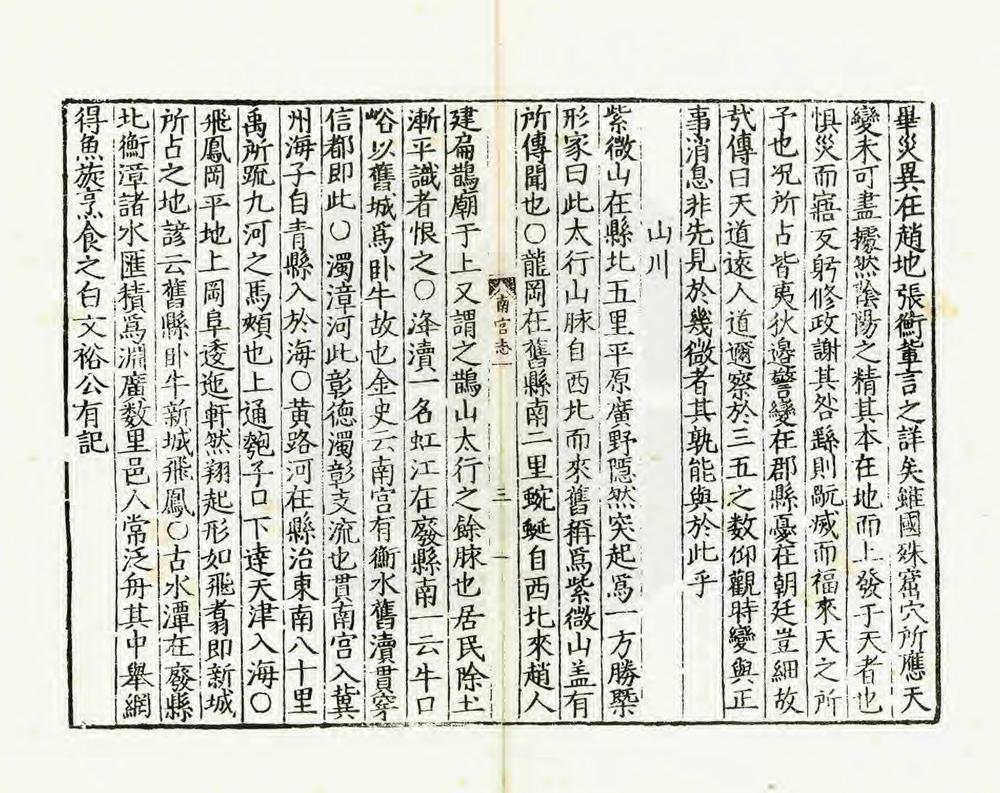 畢災異在趙地張衡輩言之詳矣雖國殊窟穴所應天
變未可盡據然隂陽之精其本在地而上發于天者也
惧災而寤反躬修政謝其咎繇則戾滅而福來天之所
予也况所占皆夷狄邊警變在郡縣憂在朝廷豈細故
㢤傳曰天道遠人道邇察於三五之数仰觀時變與正
事消息非先見於幾微者其孰能與於此乎
山川
紫微山在縣北五里平原廣野隠然突起爲一方勝槩
形家曰此太行山脉自西北而來舊稱爲紫微山盖有
所傳聞也〇龍岡在舊縣南二里蜿蜒自西北來趙人
南宫志一
三
建扁鵲廟于上又謂之鵲山太行之餘脉也居民除土
漸平識者恨之〇洚瀆一名虹江在廢縣南一云牛口
峪以舊城爲卧牛故也金史云南宫有衡水舊瀆貫穿
信都即此〇濁漳河此彰德濁彰支流也貫南宫入冀
州海子自青縣入於海〇黄路河在縣治東南八十里
禹所䟽九河之馬頰也上通瓠子口下逹天津入海〇
飛鳳岡平地上岡阜逶迤軒然翔起形如飛翥即新城
所占之地諺云舊縣卧牛新城飛鳳〇古水潭在廢縣
北衡漳諸水匯積爲淵廣数里邑人常泛舟其中舉網
得魚旋烹食之白文裕公有記